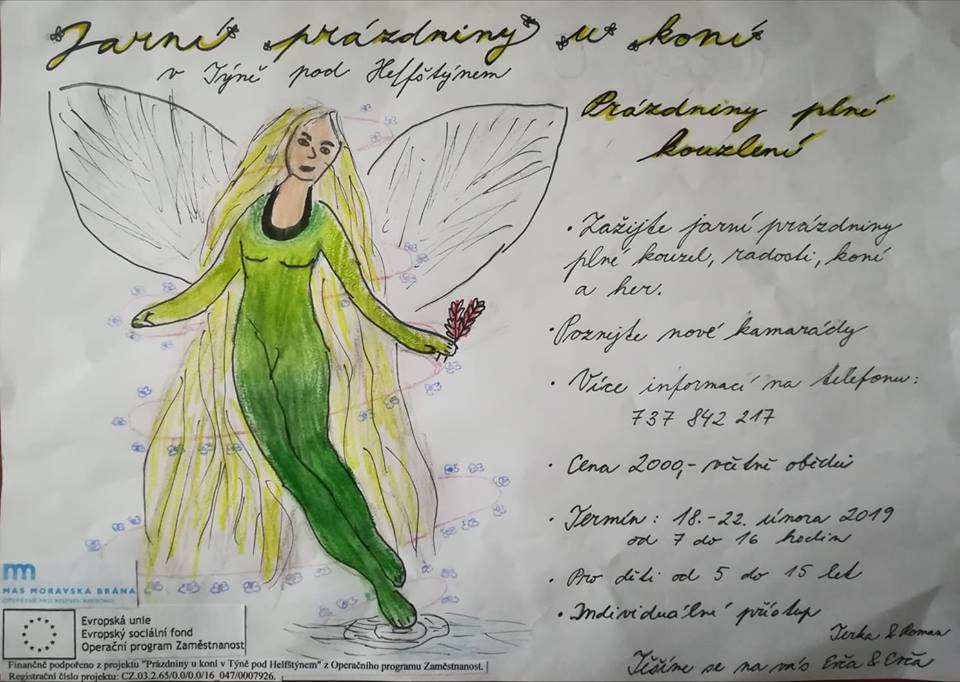 Jarní prázdniny u koní
v Týně pod Helfštýnem
Prázdniny plné
kouzlení
• Zažijte jarní prázdniny
plné kouzel, radosti, koní
a her.
• Poznejte nové kamarády
• Více informací na telefonu:
737 842 217
• Cena 2000,- včetně obědů
• Termín: 18.-22. února 2019
od 7 do 16 hodin
• Pro děti od 5 do 15 let
• Individuální přístup
Terka & Roman
Těšíme se na vás Erča & Erča
MAS MORAVSKÁ BRÁNA
Evropská unie
Evropský sociální fond
Operační program Zaměstnanost
Finančně podpořeno z projektu "Prázdniny u koní v Týně pod Helfštýnem" z Operačního programu Zaměstnanost.
Registrační číslo projektu: CZ.03.2.65/0.0/0.0/16_047/0007926.